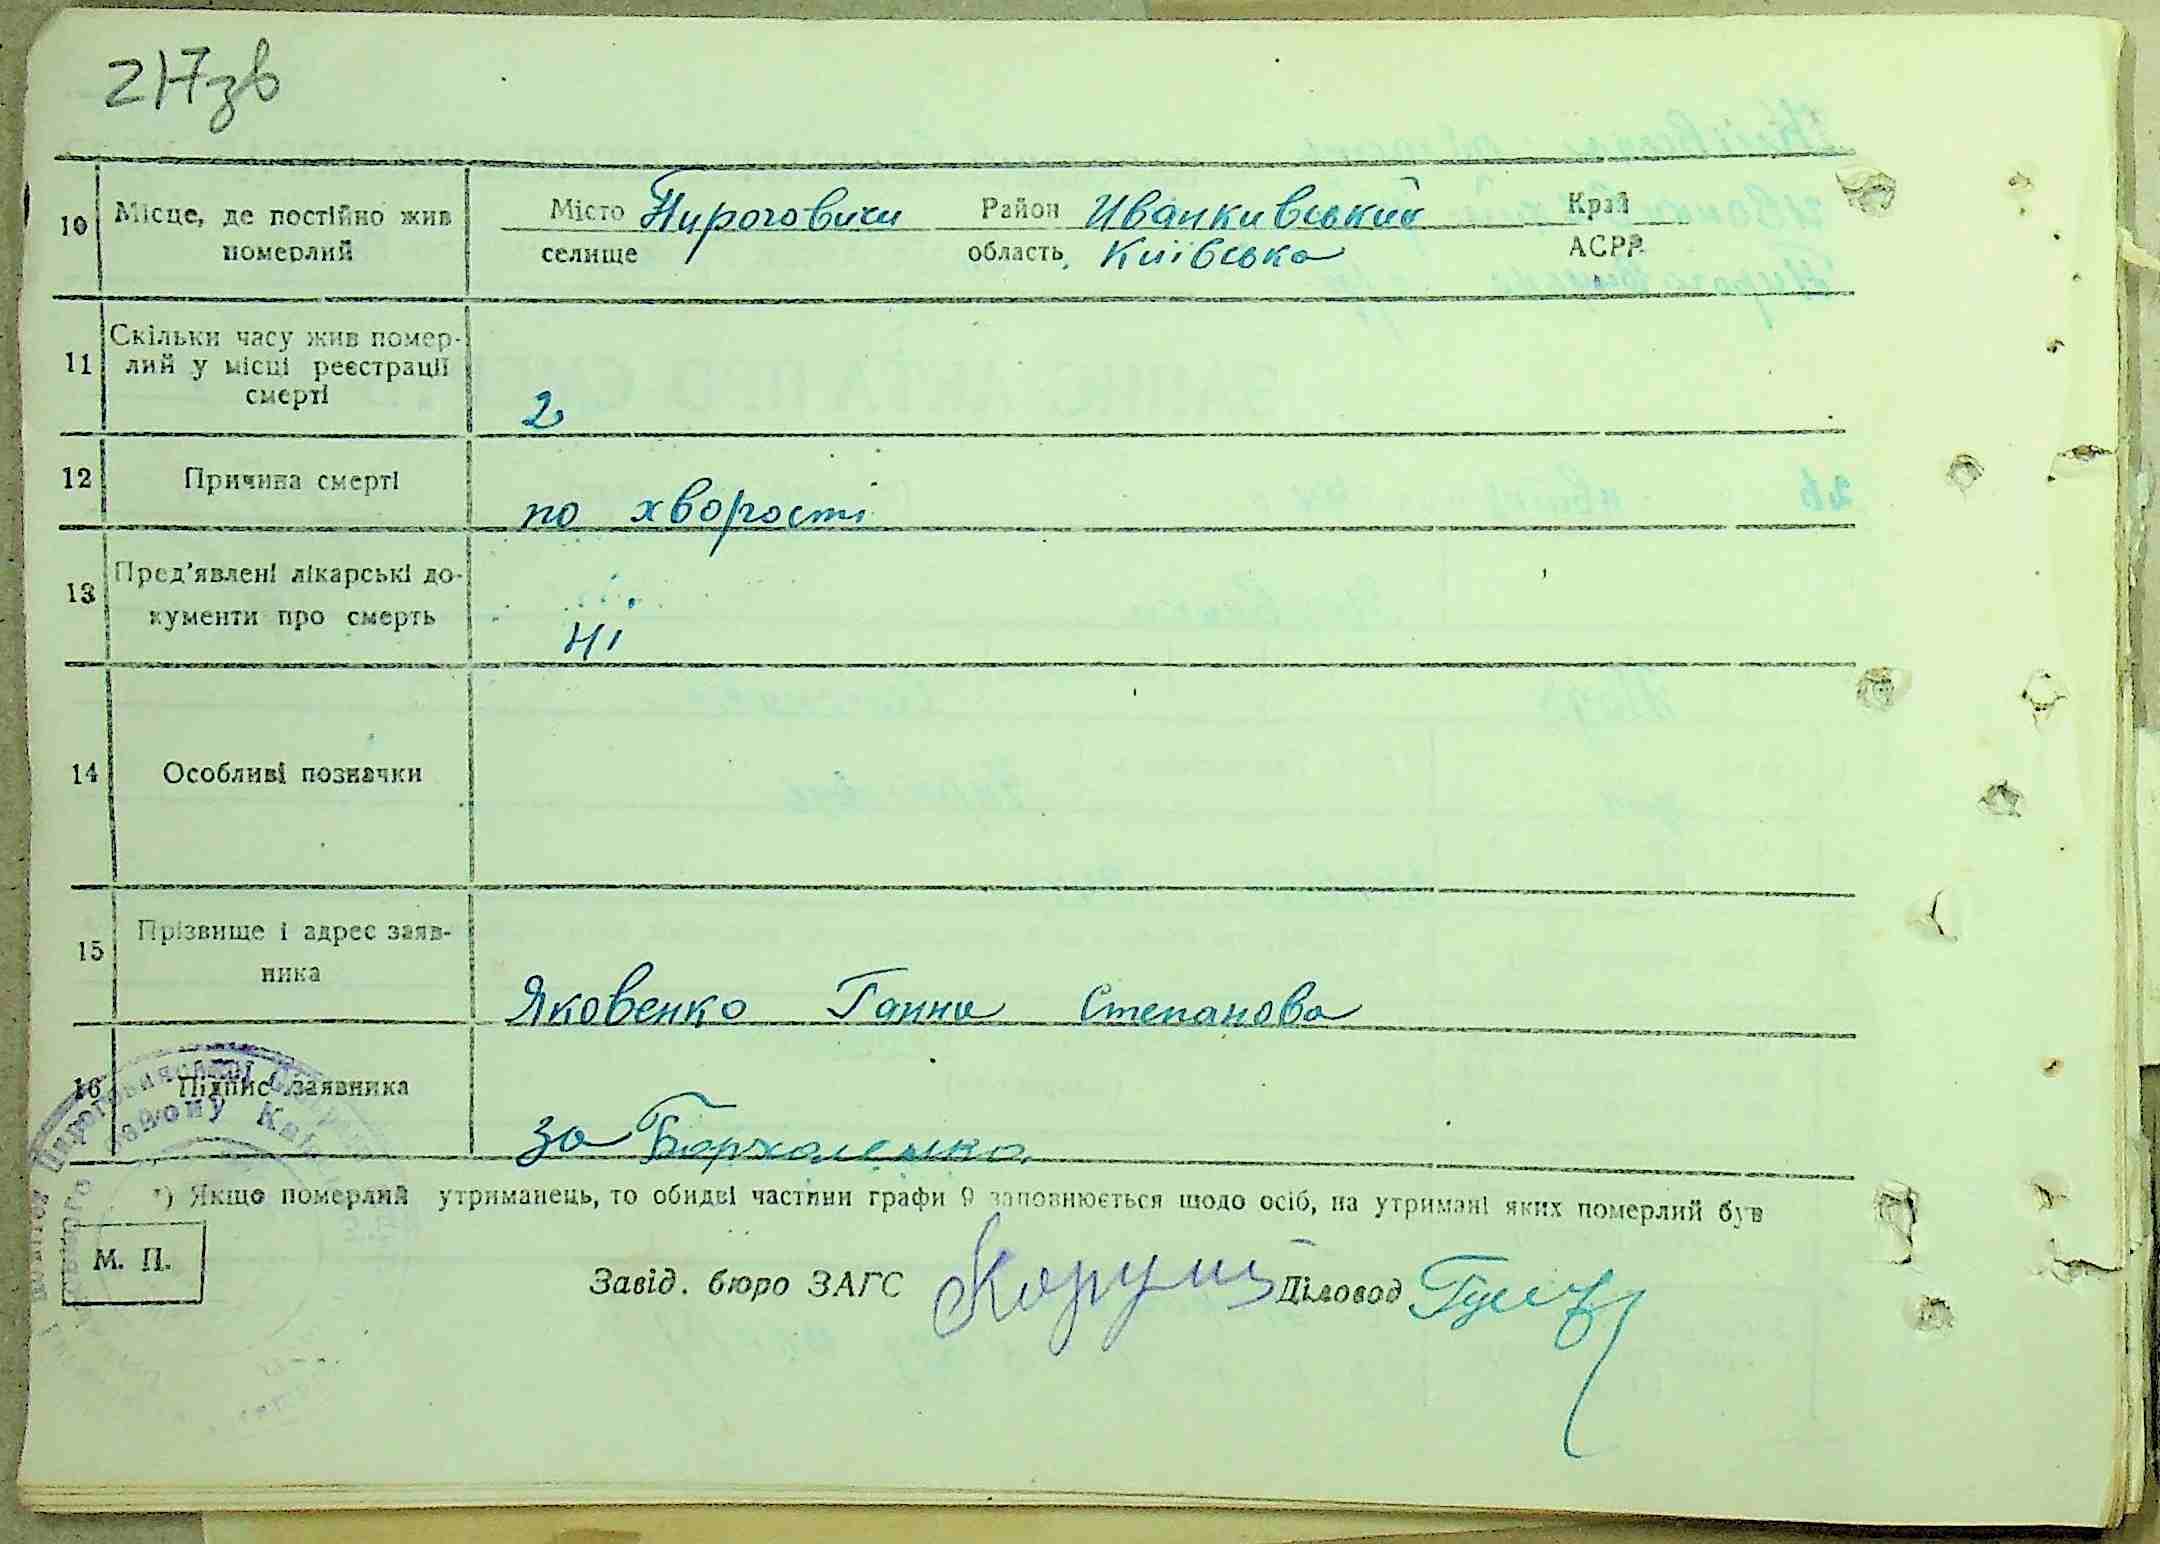 217зв
10 Місце, де постійно жив Місто Пироговичи Район Иванкивський Край
померлий селище область Київська АСРР
11 Скільки часу жив помер-
лий у місці реєстрації
смерті 2
12 Причина смерті по хворості
13 Пред'явлені лікарські до-
кументи про смерть ні
14 Особливі позначки
15 Прізвище і адрес заяв-
ника Яковенко Ганна Степанова
16 Підпис заявника за
*) Якщо померлий утриманець, то обидві частини графи 9 заповнюється щодо осіб, на утримані яких померлий був
М. П.
Завід. бюро ЗАГС Діловод